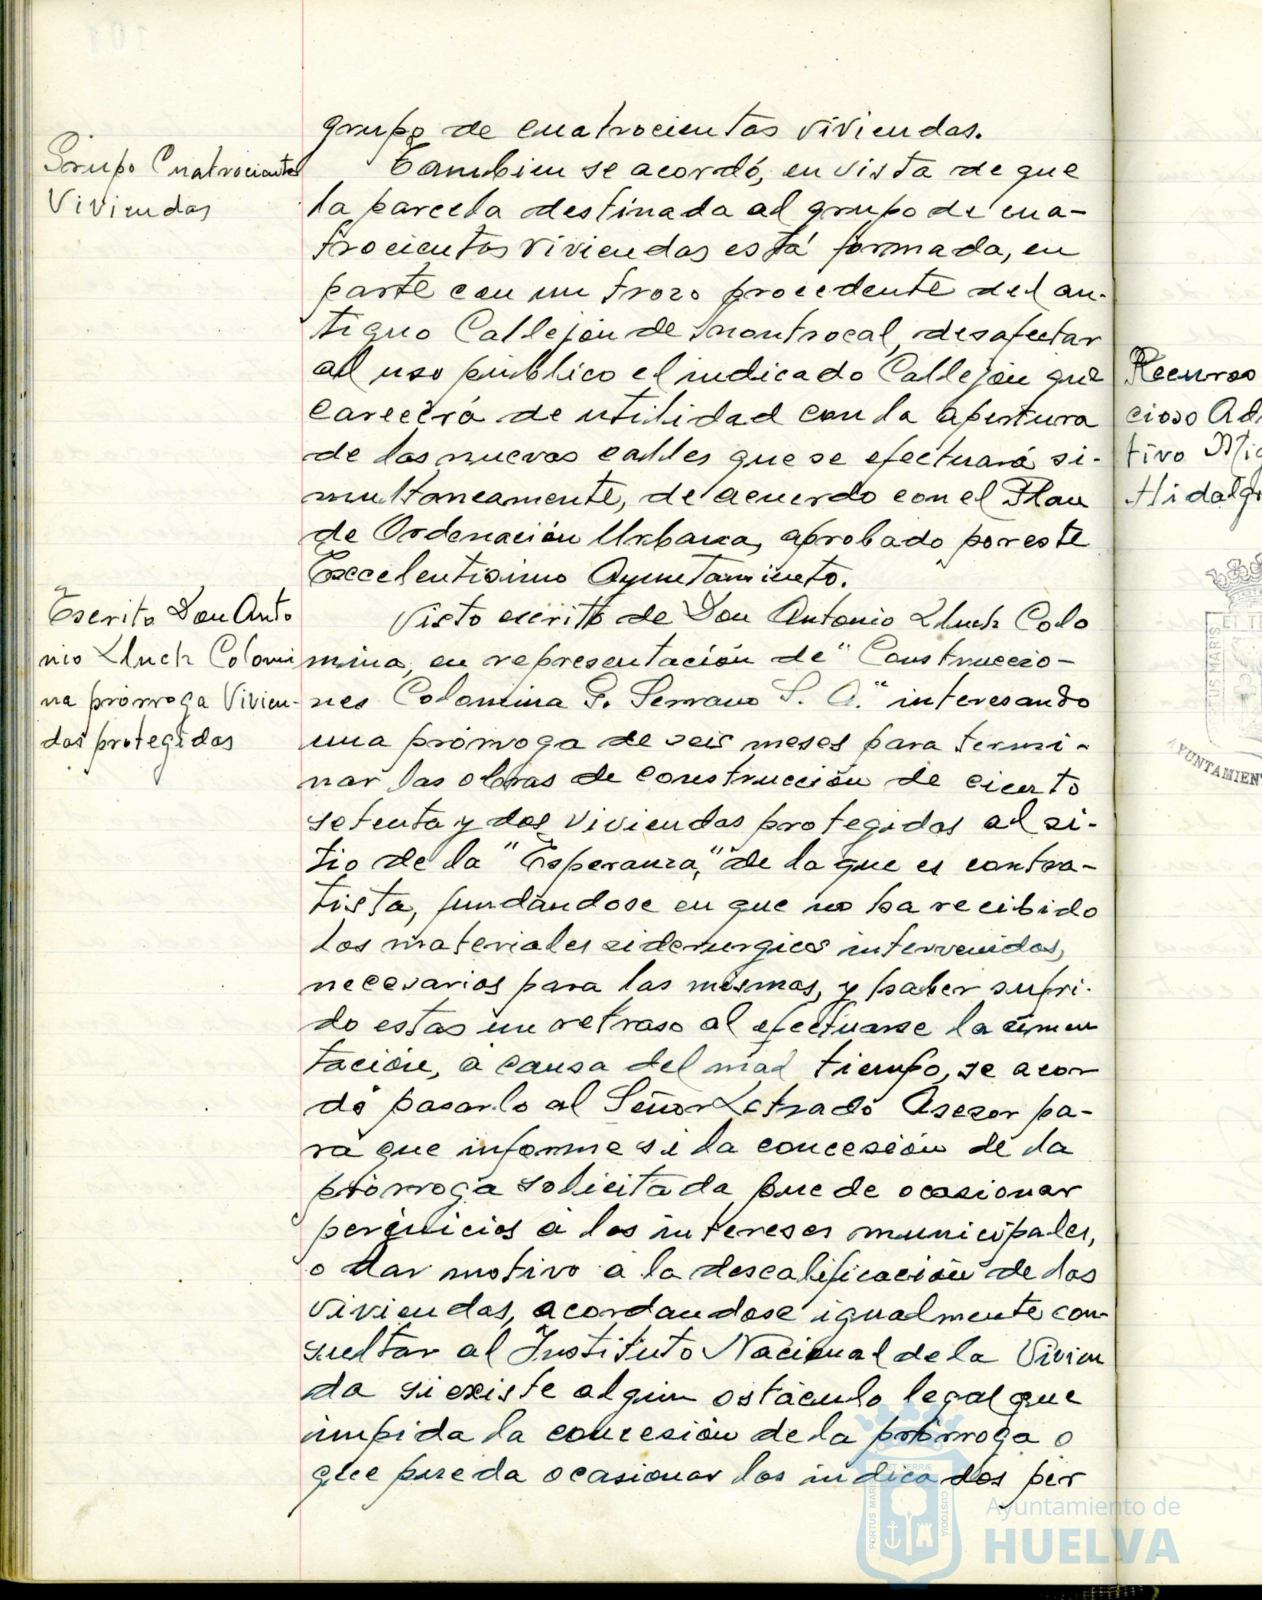 grupo de cuatrocientas viviendas.
Grupo Cuatrocientas
Viviendas
Tambien se acordó, en vista de que
la parcela destinada al grupo de cua-
trocientas viviendas está formada, en
parte con un trozo procedente del an-
tiguo Callejón de Montrocal, desafectar
al uso público el indicado Callejón que
carecerá de utilidad con la apertura
de las nuevas calles que se efectuará si-
multaneamente, de acuerdo con el Plan
de Ordenación Urbana, aprobado por este
Excelentisimo Ayuntamiento.
Escrito Don Anto
nio Lluch Colomi
na prórroga Vivien-
das protegidas
Visto escrito de Don Antonio Lluch Colo
mina, en representación de "Construccio-
nes Colomina G. Serrano S. A." interesando
una prórroga de seis meses para termi-
nar las obras de construcción de ciento
setenta y dos viviendas protegidas al si-
tio de la "Esperanza," de la que es contra-
tista, fundandose en que no ha recibido
los materiales siderurgicos intervenidos,
necesarios para las mismas, y haber sufri-
do estas un retraso al efectuarse la cimen
tación, a causa del mal tiempo, se acor
dó pasarlo al Señor Letrado Asesor pa-
ra que informe si la concesión de la
prórroga solicitada puede ocasionar
perjuicios a los intereses municipales,
o dar motivo a la descalificación de las
viviendas, acordandose igualmente con-
sultar al Instituto Nacional de la Vivien
da si existe algún ostáculo legal que
impida la concesión de la prórroga o
que pueda ocasionar los indicados per
Recurso
cioso Ad
tivo Mig
Hidalg
ET TE
US MARIS
AYUNTAMIEN
PORTUS MARIS
ET TERRÆ
CUSTODIA
Ayuntamiento de
HUELVA